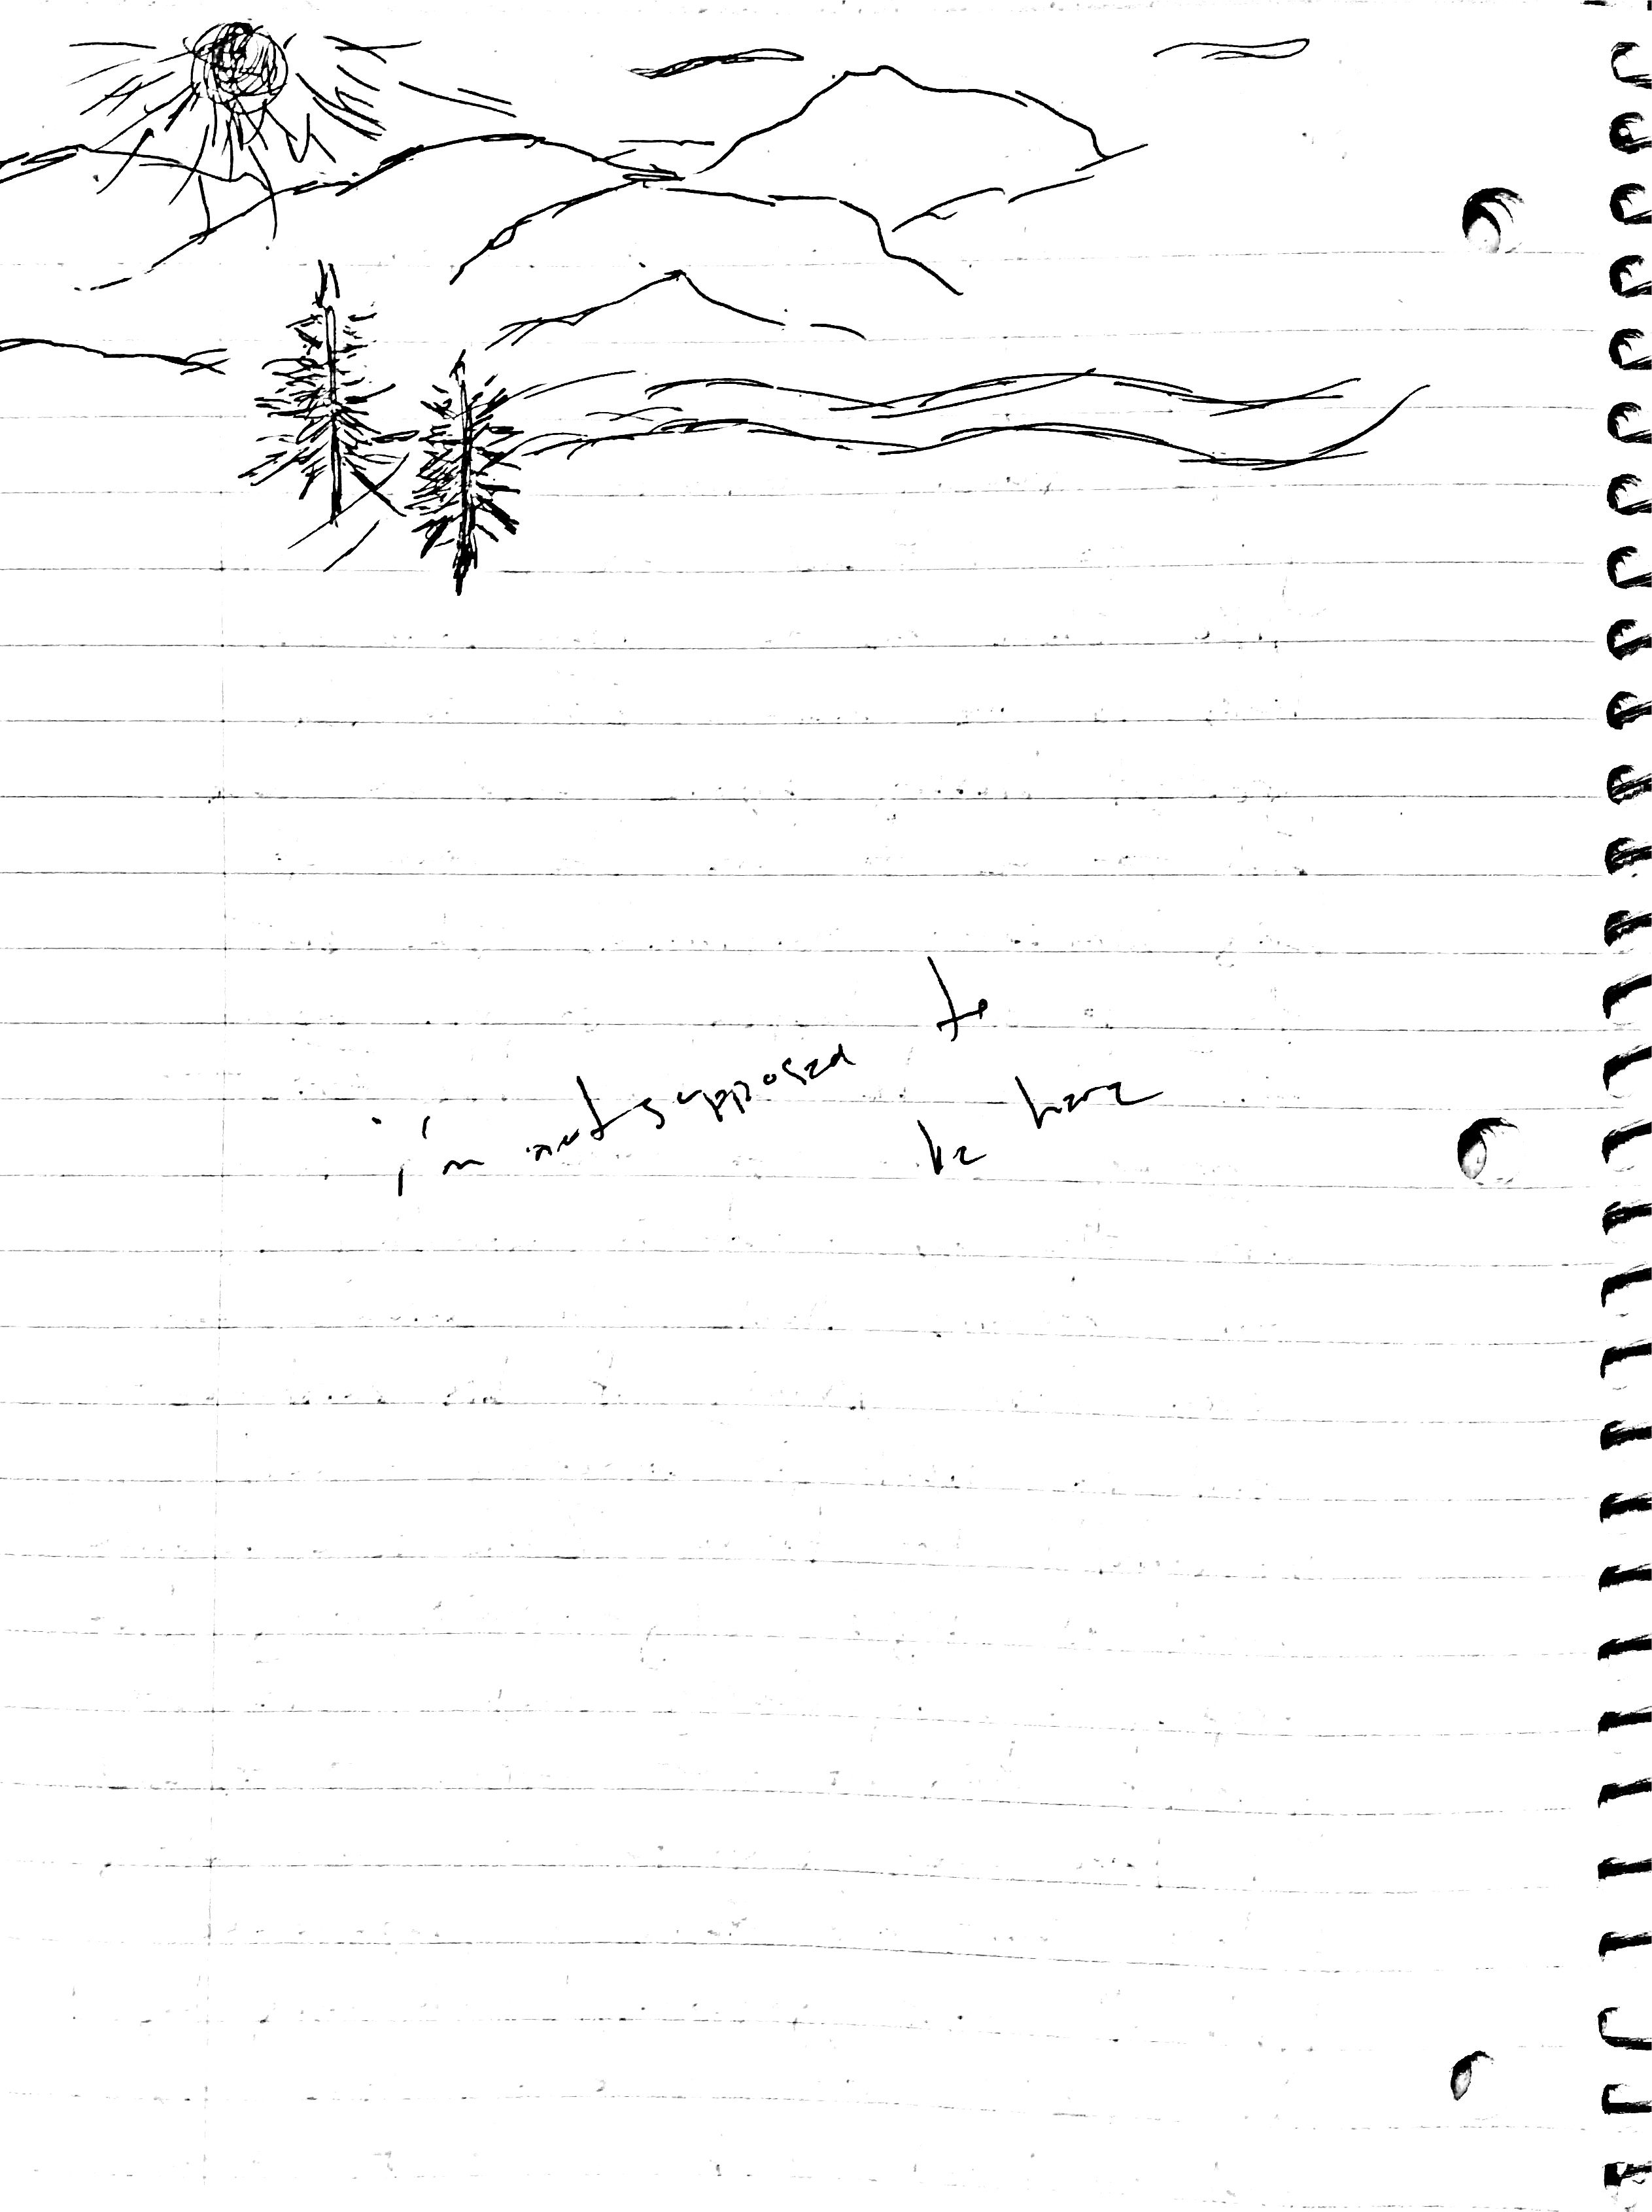 i'm not supposed to
be here